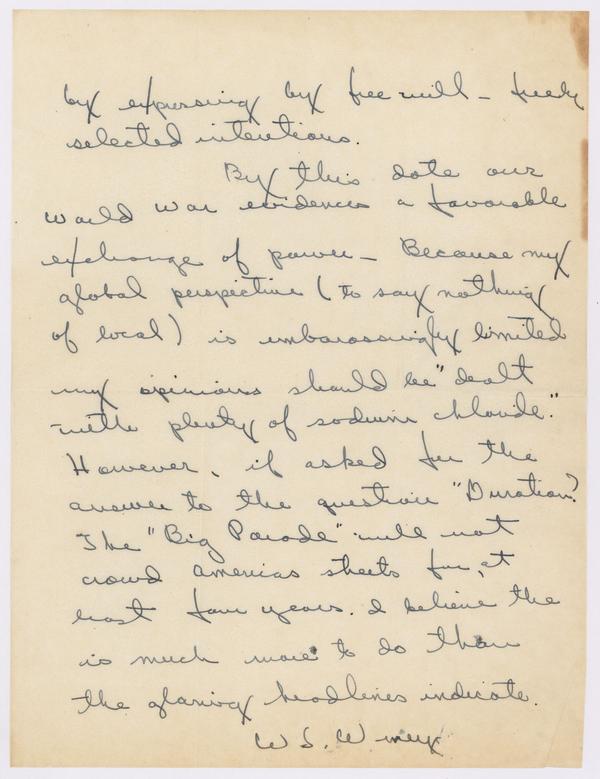 by expressing by free will - freely
selected intentions.
By this date our
world war evidences a favorable
exchange of power - Because my
global perspective (to say nothing
of local) is embarassingly limited
my opinions should be "dealt
with plenty of sodium chloride."
However, if asked for the
answer to the question "Duration?
The "Big Parade" will not
crowd Americas streets for, at
least four years. I believe the
is much more to do than
the glaring headlines indicate.
W S. W